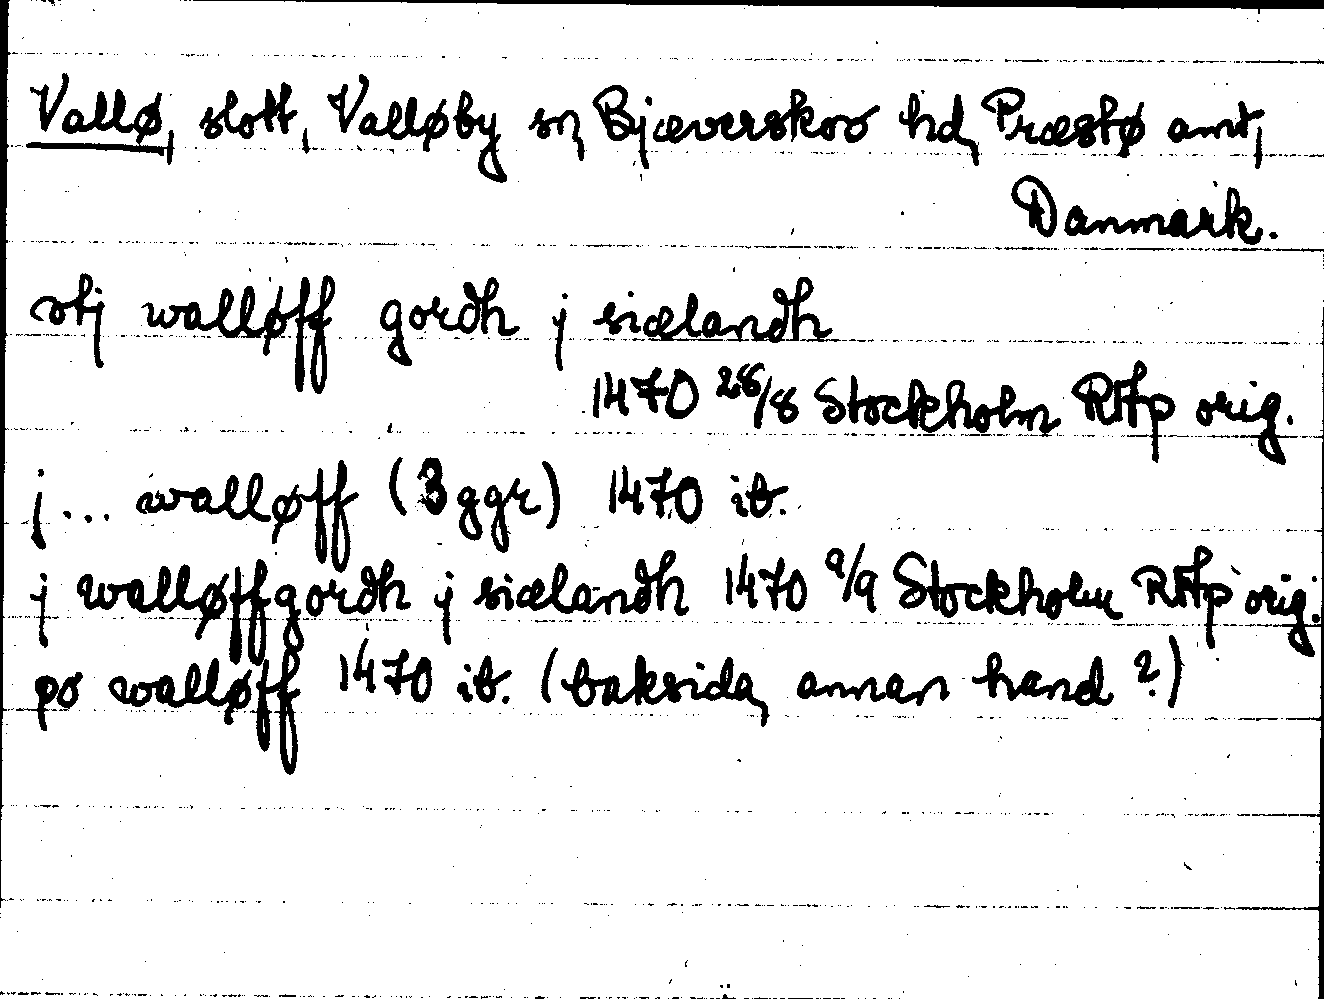 Vallø, slott, Valløby sn, Bjæverskov hd, Præstø amt,
Danmark.
vtj walløff gordh j siælandh
1470 28/8 Stockholm RAp orig.
j... walløff (3 ggr) 1470 ib.
j walløffgordh j siælandh 1470 9/9 Stockholm RAp orig.
po walløff 1470 ib. (baksida, annan hand?)